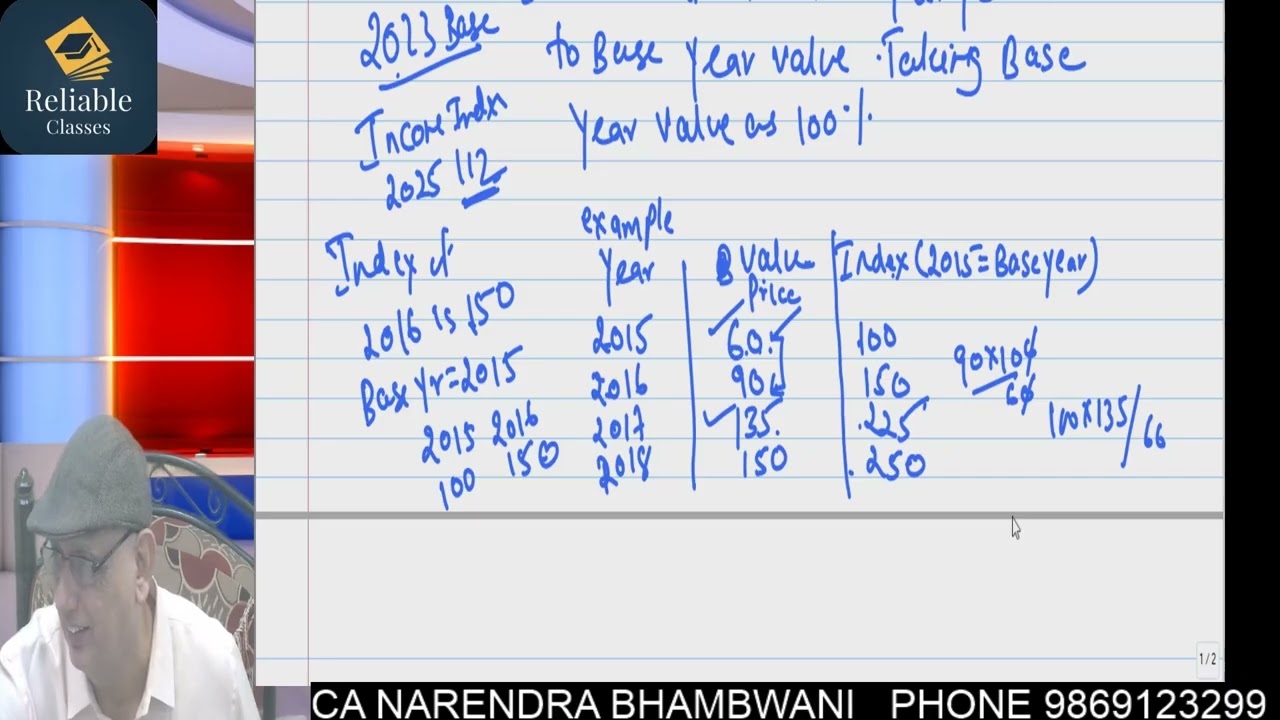 Reliable
Classes
2023 Base
to Base year value. Taking Base
Year Value as 100%
Income Index
2025 112
Index of
2016 is 150
Base Yr=2015
2015 2016
100 150
example
Year Value Index (2015=Base year)
Price
2015 60. 100
2016 90 150
2017 135. .225
2018 150 .250
90×100
60
100×135/60
1/2
CA NARENDRA BHAMBWANI PHONE 9869123299